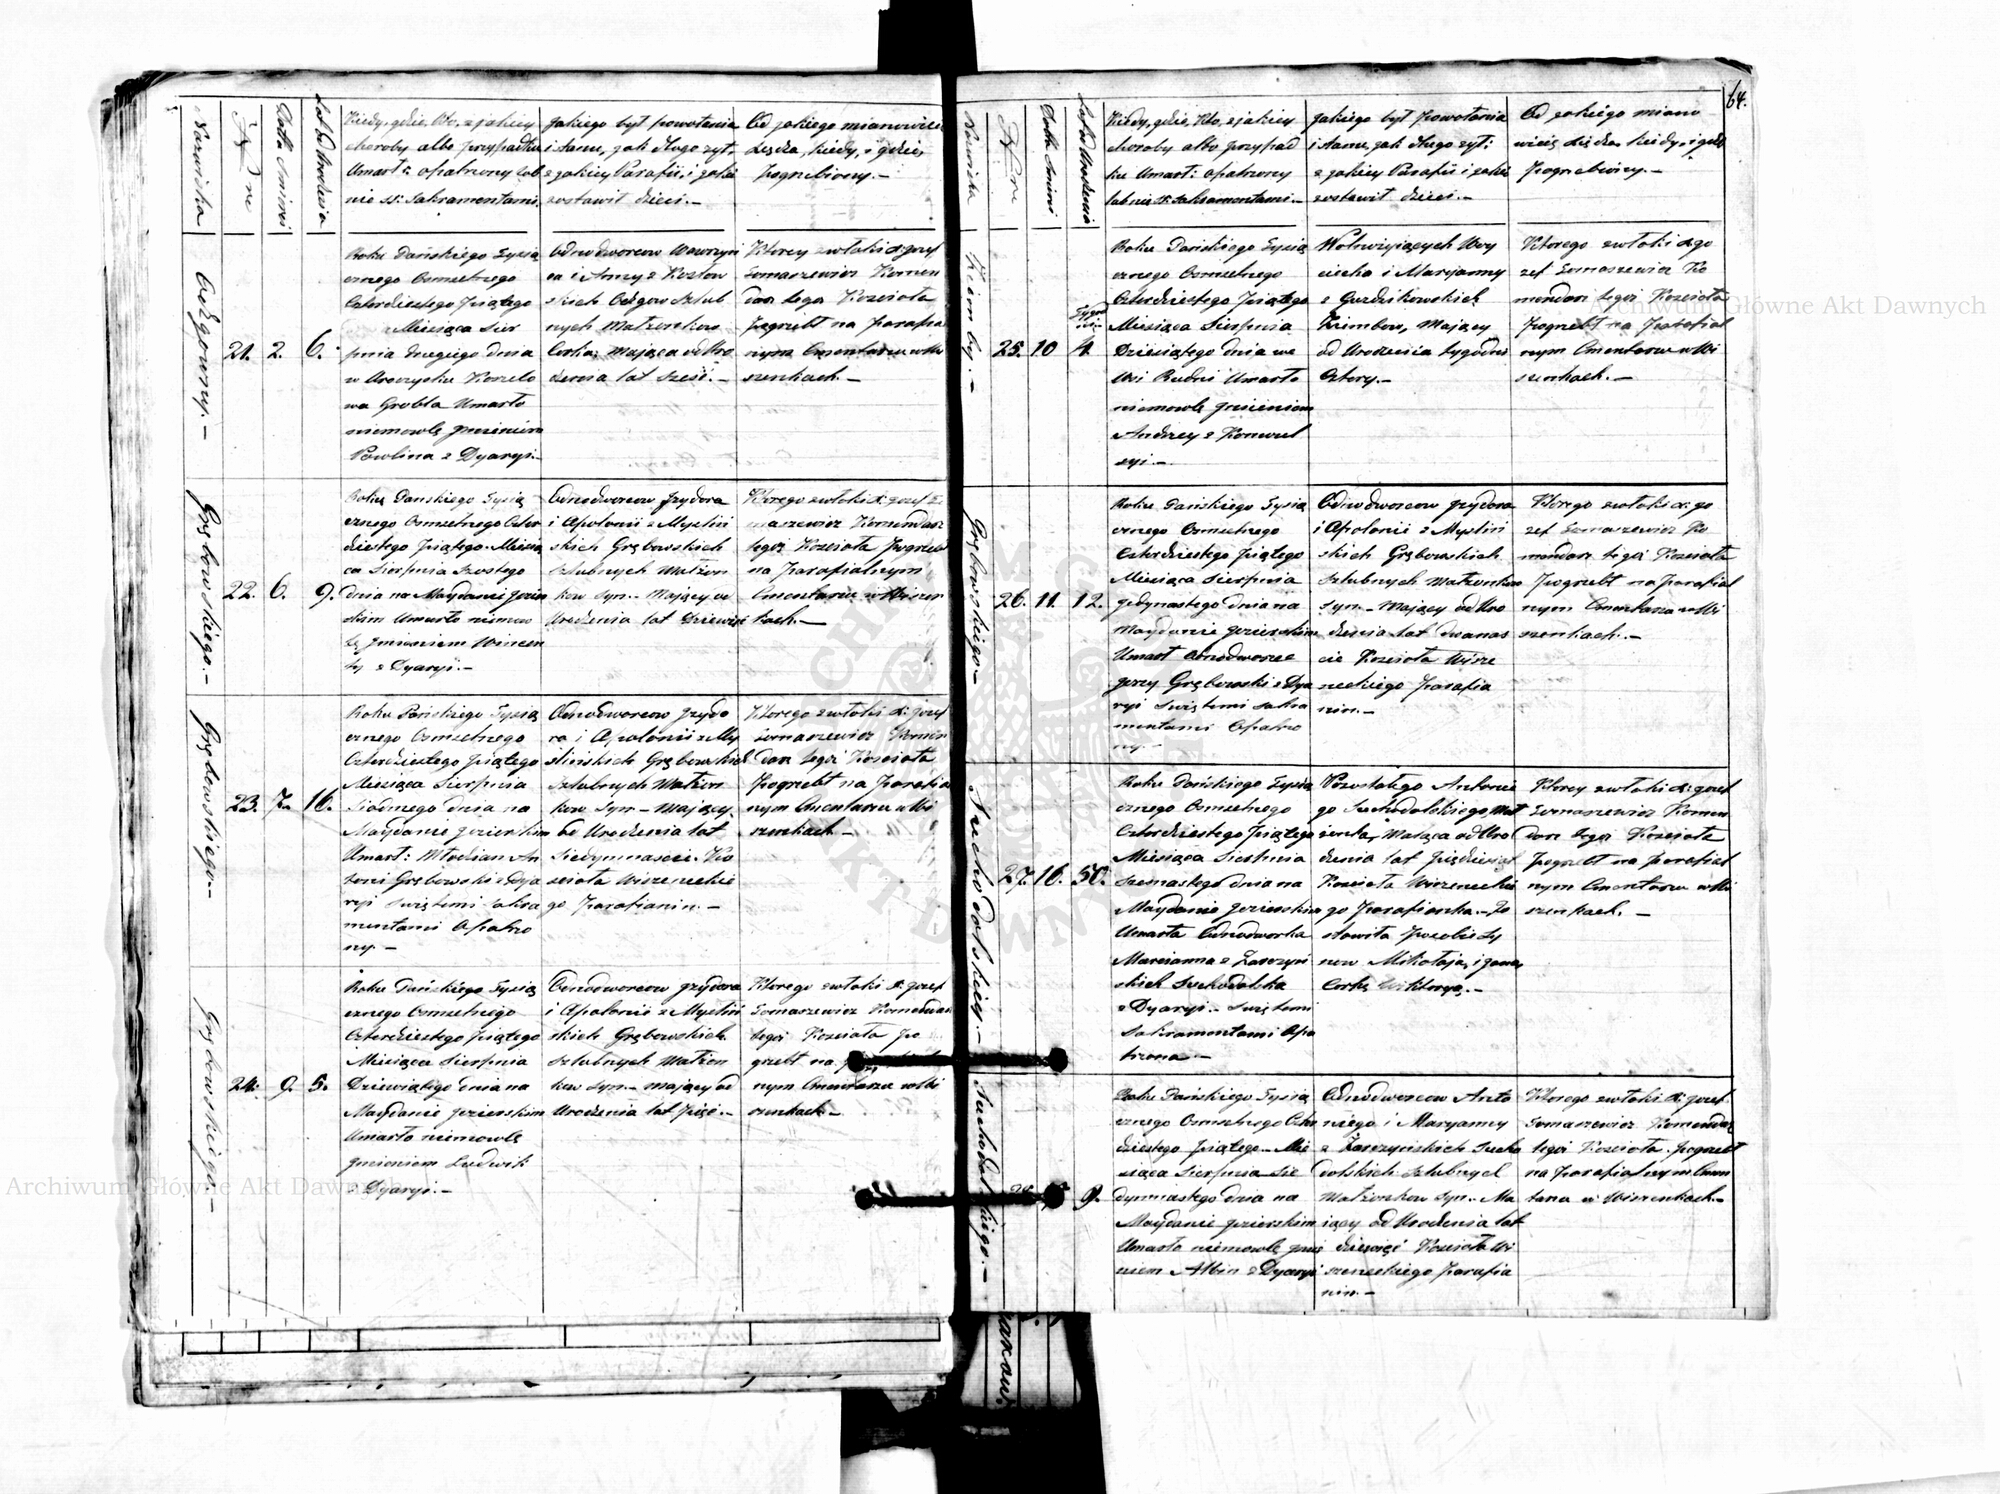 64.
Nazwiska
Nre
Data Smierci
Lat od Urodzenia
Kiedy, gdzie, Kto, z jakiey
choroby albo przypadku
Umarł: opatrzony lub
nie SS: Sakramentami.
Jakiego był powołania
i stanu, jak długo żył:
z jakiey Parafii, i jakie
zostawił dzieci.—
Od jakiego mianowicie
Xiędza, kiedy, i gdzie,
Pogrzebiony.—
21. 2. 6.
Roku Pańskiego Tysią
cznego Osmsetnego
Czterdziestego piątego
Miesiąca Sier
pnia drugiego dnia
w Uroczysku
Grobla Umarło
niemowlę imieniem
Pawlina z Dyaryi.—
Odnodworcow Wawrzyń
ca i Anny z Kozłow
skich Ślub
nych Małżonkow
Corka, mająca od Uro
dzenia lat sześć.—
Ktorey zwłoki X: Jozef
Tomaszewicz Komen
darz tegoż Kościoła
Pogrzebł na parafial
nym Cmentarzu w Wi
szenkach.—
Grębowskiego.—
22. 6. 9.
Roku Pańskiego Tysią
cznego Osmsetnego Czter
dziestego piątego Miesią
ca Sierpnia Szostego
dnia na Maydanie Jezier
skim Umarło niemow
lę imieniem Wincen
ty z Dyaryi.—
Odnodworcow Jzydora
i Apolonii z Myśliń
skich Grębowskich
Szlubnych Małżon
kow Syn.— Mający od
Urodzenia lat dziewięć
Ktorego zwłoki X: Jozef To
maszewicz Komendarz
tegoż Kościoła Pogrzebł
na Parafialnym
Cmentarzu w Wiszen
kach.—
Grębowskiego.—
23. 7. 16.
Roku Pańskiego Tysią
cznego Osmsetnego
Czterdziestego piątego
Miesiąca Sierpnia
Siodmego dnia na
Maydanie Jezierskim
Umarł: Młodzian An
toni Grębowski z Dya
ryi Swiętemi Sakra
mentami Opatrzo
ny.—
Odnodworcow Jzydo
ra i Apolonii z My
ślińskich Grębowskich
Szlubnych Małżon
kow Syn.— Mający
od Urodzenia lat
Siedymnascie. Ko
scioła Wiszeneckie
go Parafianin.—
Ktorego zwłoki X: Jozef
Tomaszewicz Komen
darz tegoż Kościoła
Pogrzebł na Parafial
nym Cmentarzu w Wi
szenkach.—
Grębowskiego.—
24. 9. 5.
Roku Pańskiego Tysią
cznego Osmsetnego
Czterdziestego piątego
Miesiąca Sierpnia
Dziewiątego dnia na
Maydanie Jezierskim
Umarło niemowlę
imieniem Ludwik
z Dyaryi.—
Odnodworcow Jzydora
i Apolonii z Myśliń
skich Grębowskich
Szlubnych Małżon
kow Syn.— Mający od
Urodzenia lat pięć.—
Ktorego zwłoki X: Jozef
Tomaszewicz Komendarz
tegoż Kościoła Po
grzebł na
nym Cmentarzu w Wi
szenkach.—
Nazwiska
Nre
Data Smierci
Lat od Urodzenia
Kiedy, gdzie, Kto, z jakiey
choroby albo przypad
ku Umarł: opatrzony
lub nie SS: Sakramentami.—
Jakiego był Powołania
i stanu, jak długo żył:
z jakiey Parafii i jakie
zostawił dzieci.—
Od jakiego miano
wicie Xiędza, kiedy, i gdzie
Pogrzebiony.—
25. 10 4.
Roku Pańskiego Tysią
cznego Osmsetnego
Czterdziestego piątego
Miesiąca Sierpnia
Dziesiątego dnia we
Wsi Rudni Umarło
niemowlę imieniem
Andrzey z Konwul
syi.—
Woy
ciecha i Maryanny
z
mający
od Urodzenia tygodni
Cztery.—
Ktorego zwłoki X: Jo
zef Tomaszewicz Ko
mendarz tegoż Kościoła
Pogrzebł na Parafial
nym Cmentarzu w Wi
szenkach.—
Grębowskiego.—
26. 11. 12.
Roku Pańskiego Tysią
cznego Osmsetnego
Czterdziestego piątego
Miesiąca Sierpnia
jedynastego dnia na
Maydanie Jezierskim
Umarł Odnodworzec
Jerzy Grębowski z Dya
ryi Swiętemi Sakra
mentami Opatrzo
ny.—
Odnodworcow Jzydora
i Apolonii z Myśliń
skich Grębowskich
Szlubnych Małżonkow
Syn.— Mający od Uro
dzenia lat dwanas
cie Kościoła Wisze
neckiego Parafia
nin.—
Ktorego zwłoki X: Jo
zef Tomaszewicz Ko
mendarz tegoż Kościoła
Pogrzebł na parafial
nym Cmentarzu w Wi
szenkach.—
Suchodolskiey.—
27. 16. 50.
Roku Pańskiego Tysią
cznego Osmsetnego
Czterdziestego piątego
Miesiąca Sierpnia
Szesnastego dnia na
Maydanie Jezierskim
Umarła Odnodworka
Maryanna z Zarczyń
skich Suchodolska
z Dyaryi.— Swiętemi
Sakramentami Opa
trzona.—
Pozostałego Antonie
go Suchodolskiego Mał
żonka, Mająca od Uro
dzenia lat pięćdziesiąt
Kościoła Wiszeneckie
go Parafianka.— Zo
stawiła po sobie Sy
now Mikołaja,
Corkę Wiktoryę.—
Ktorey zwłoki X: Jozef
Tomaszewicz Komen
darz tegoż Kościoła
Pogrzebł na Parafial
nym Cmentarzu w Wi
szenkach.—
Suchodolskiego.—
28. 9.
Roku Pańskiego Tysią
cznego Osmsetnego Czter
dziestego piątego.— Mie
siąca Sierpnia Sie
dymnastego dnia na
Maydanie Jezierskim
Umarło niemowlę imie
niem Albin z Dyaryi
Odnodworcow Anto
niego i Maryanny
z Zarczyńskich Sucho
dolskich Szlubnych
Małżonkow Syn.— Ma
iący od Urodzenia lat
dziewięć Kościoła Wi
szeneckiego Parafia
nin.—
Ktorego zwłoki X: Jozef
Tomaszewicz Komendarz
tegoż Kościoła Pogrzebł
na Parafialnym Cmen
tarzu w Wiszenkach.—
Archiwum Główne Akt Dawnych
Archiwum Główne Akt Dawnych